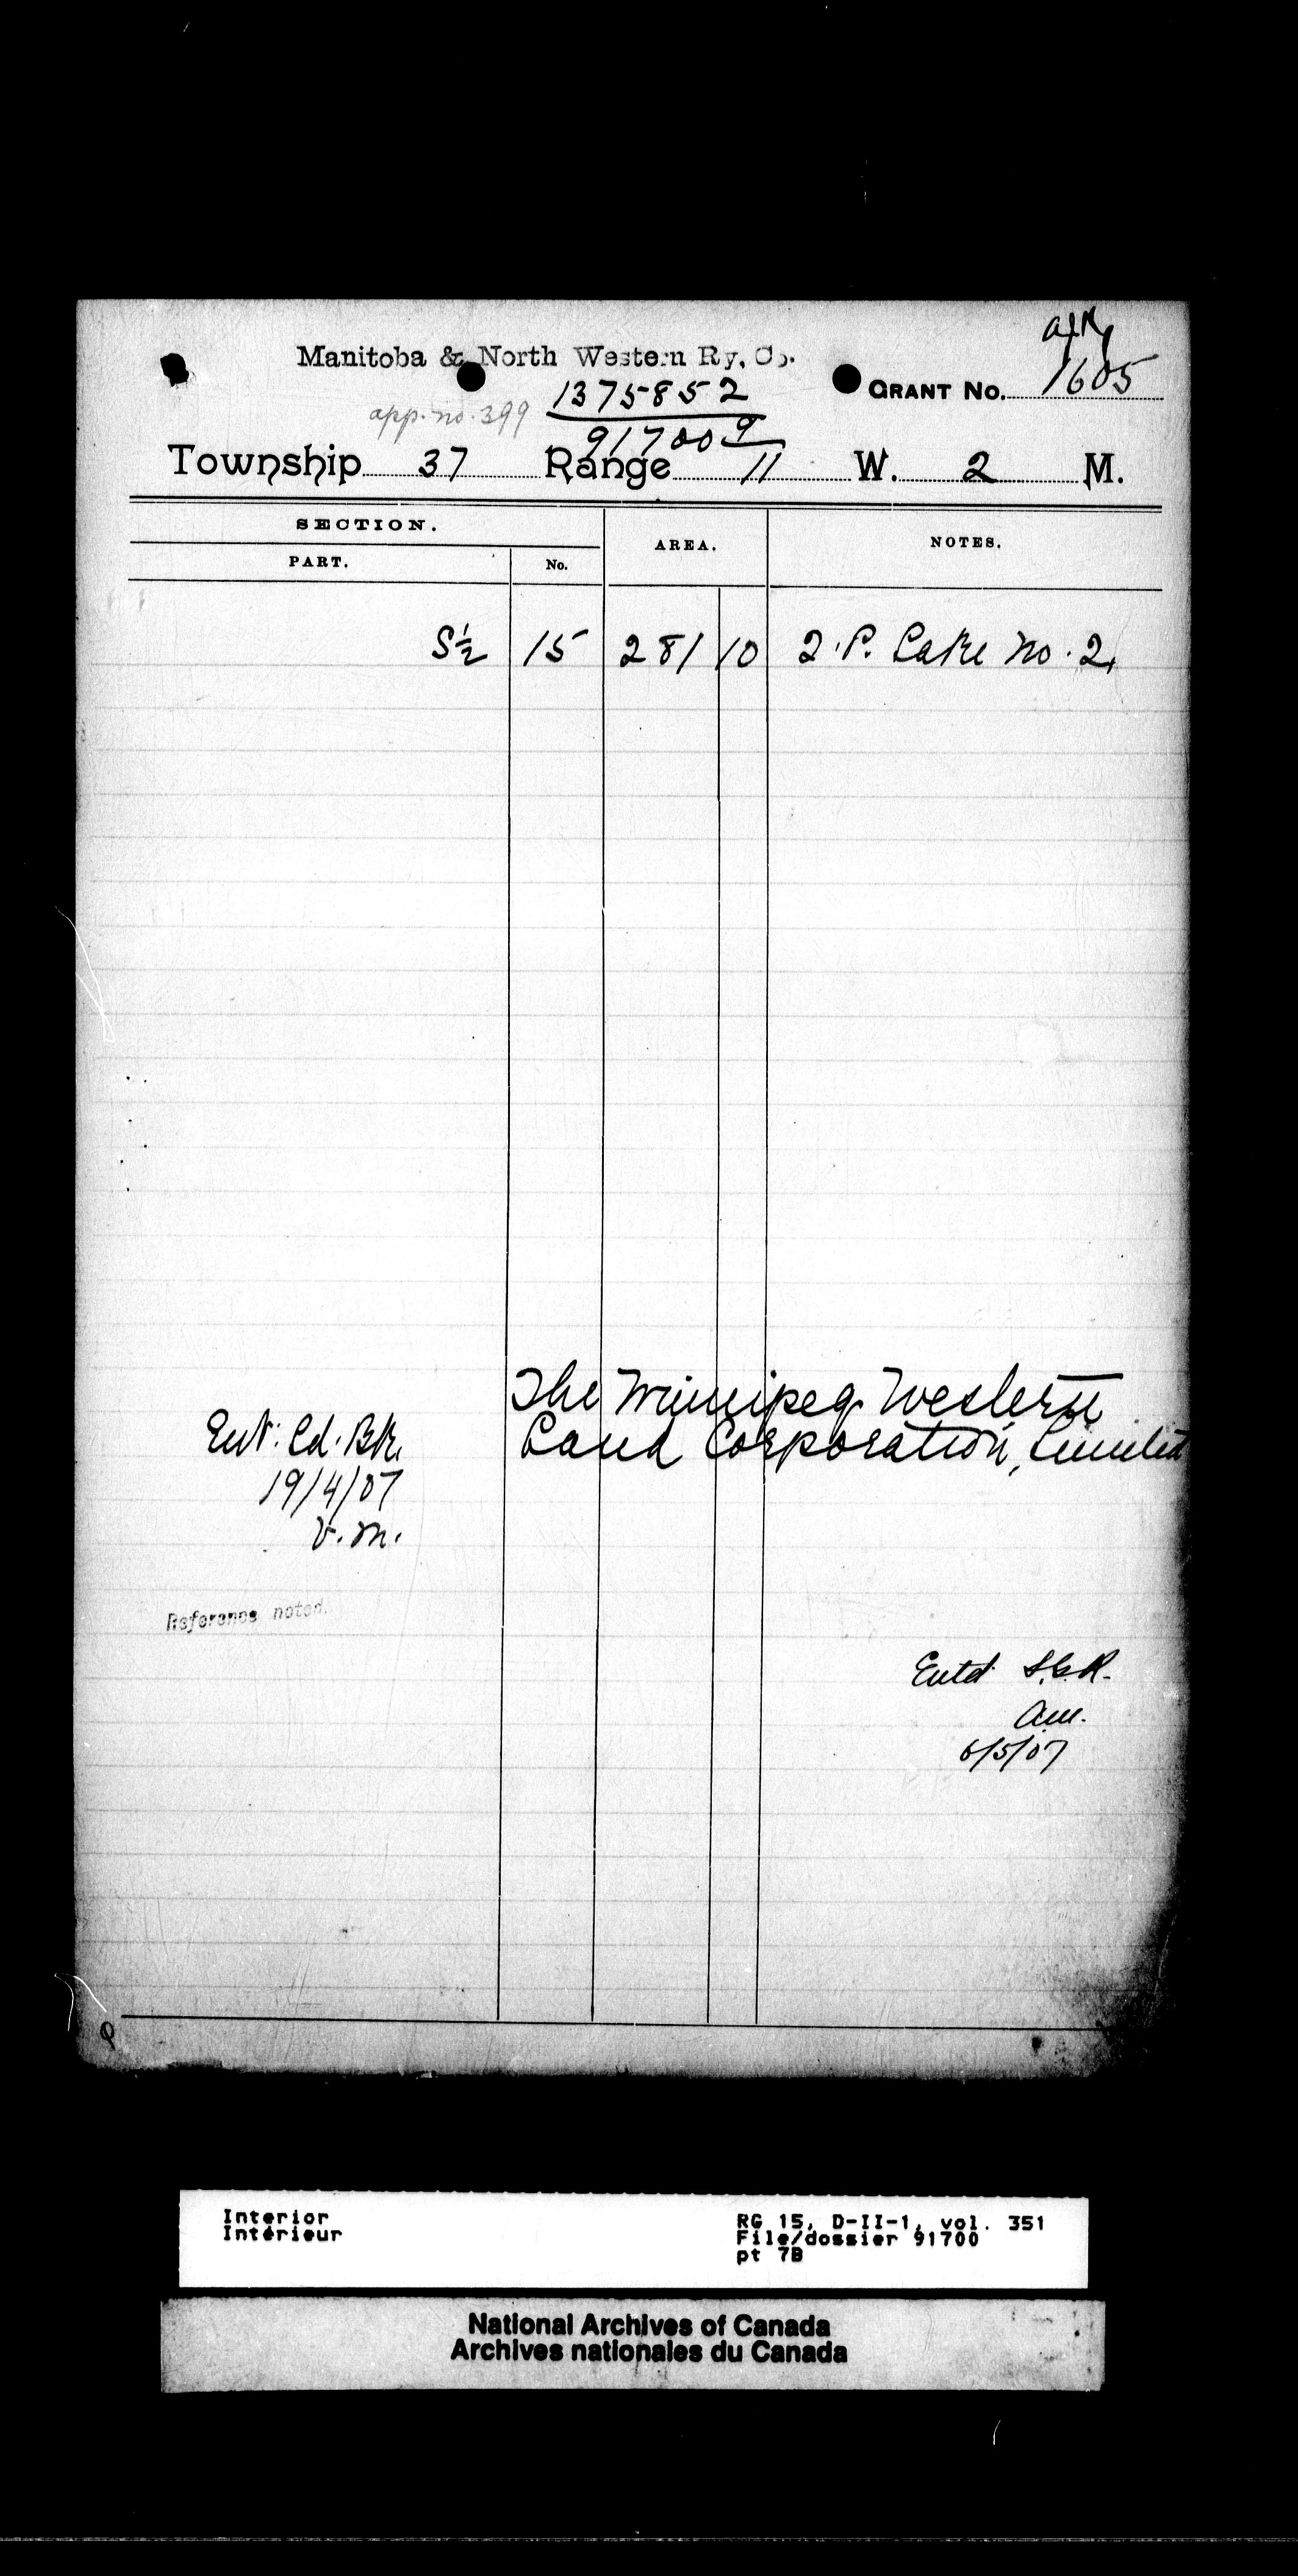 Manitoba & North Western Ry, Co.
GRANT No. 1605
app. no. 399
1375852
917009
Township 37 Range 11 W. 2 M.
SECTION. AREA. NOTES.
PART. No.
S½ 15 281 10 2. P. Lake No. 2,
The Winnipeg Western
Land Corporation, Limited
Ent. Ld. Bk.
19/4/07
V. M.
Reference noted.
Entd
6/5/07
Interior
Intérieur
RG 15, D-II-1, vol. 351
File/dossier 91700
pt 7B
National Archives of Canada
Archives nationales du Canada